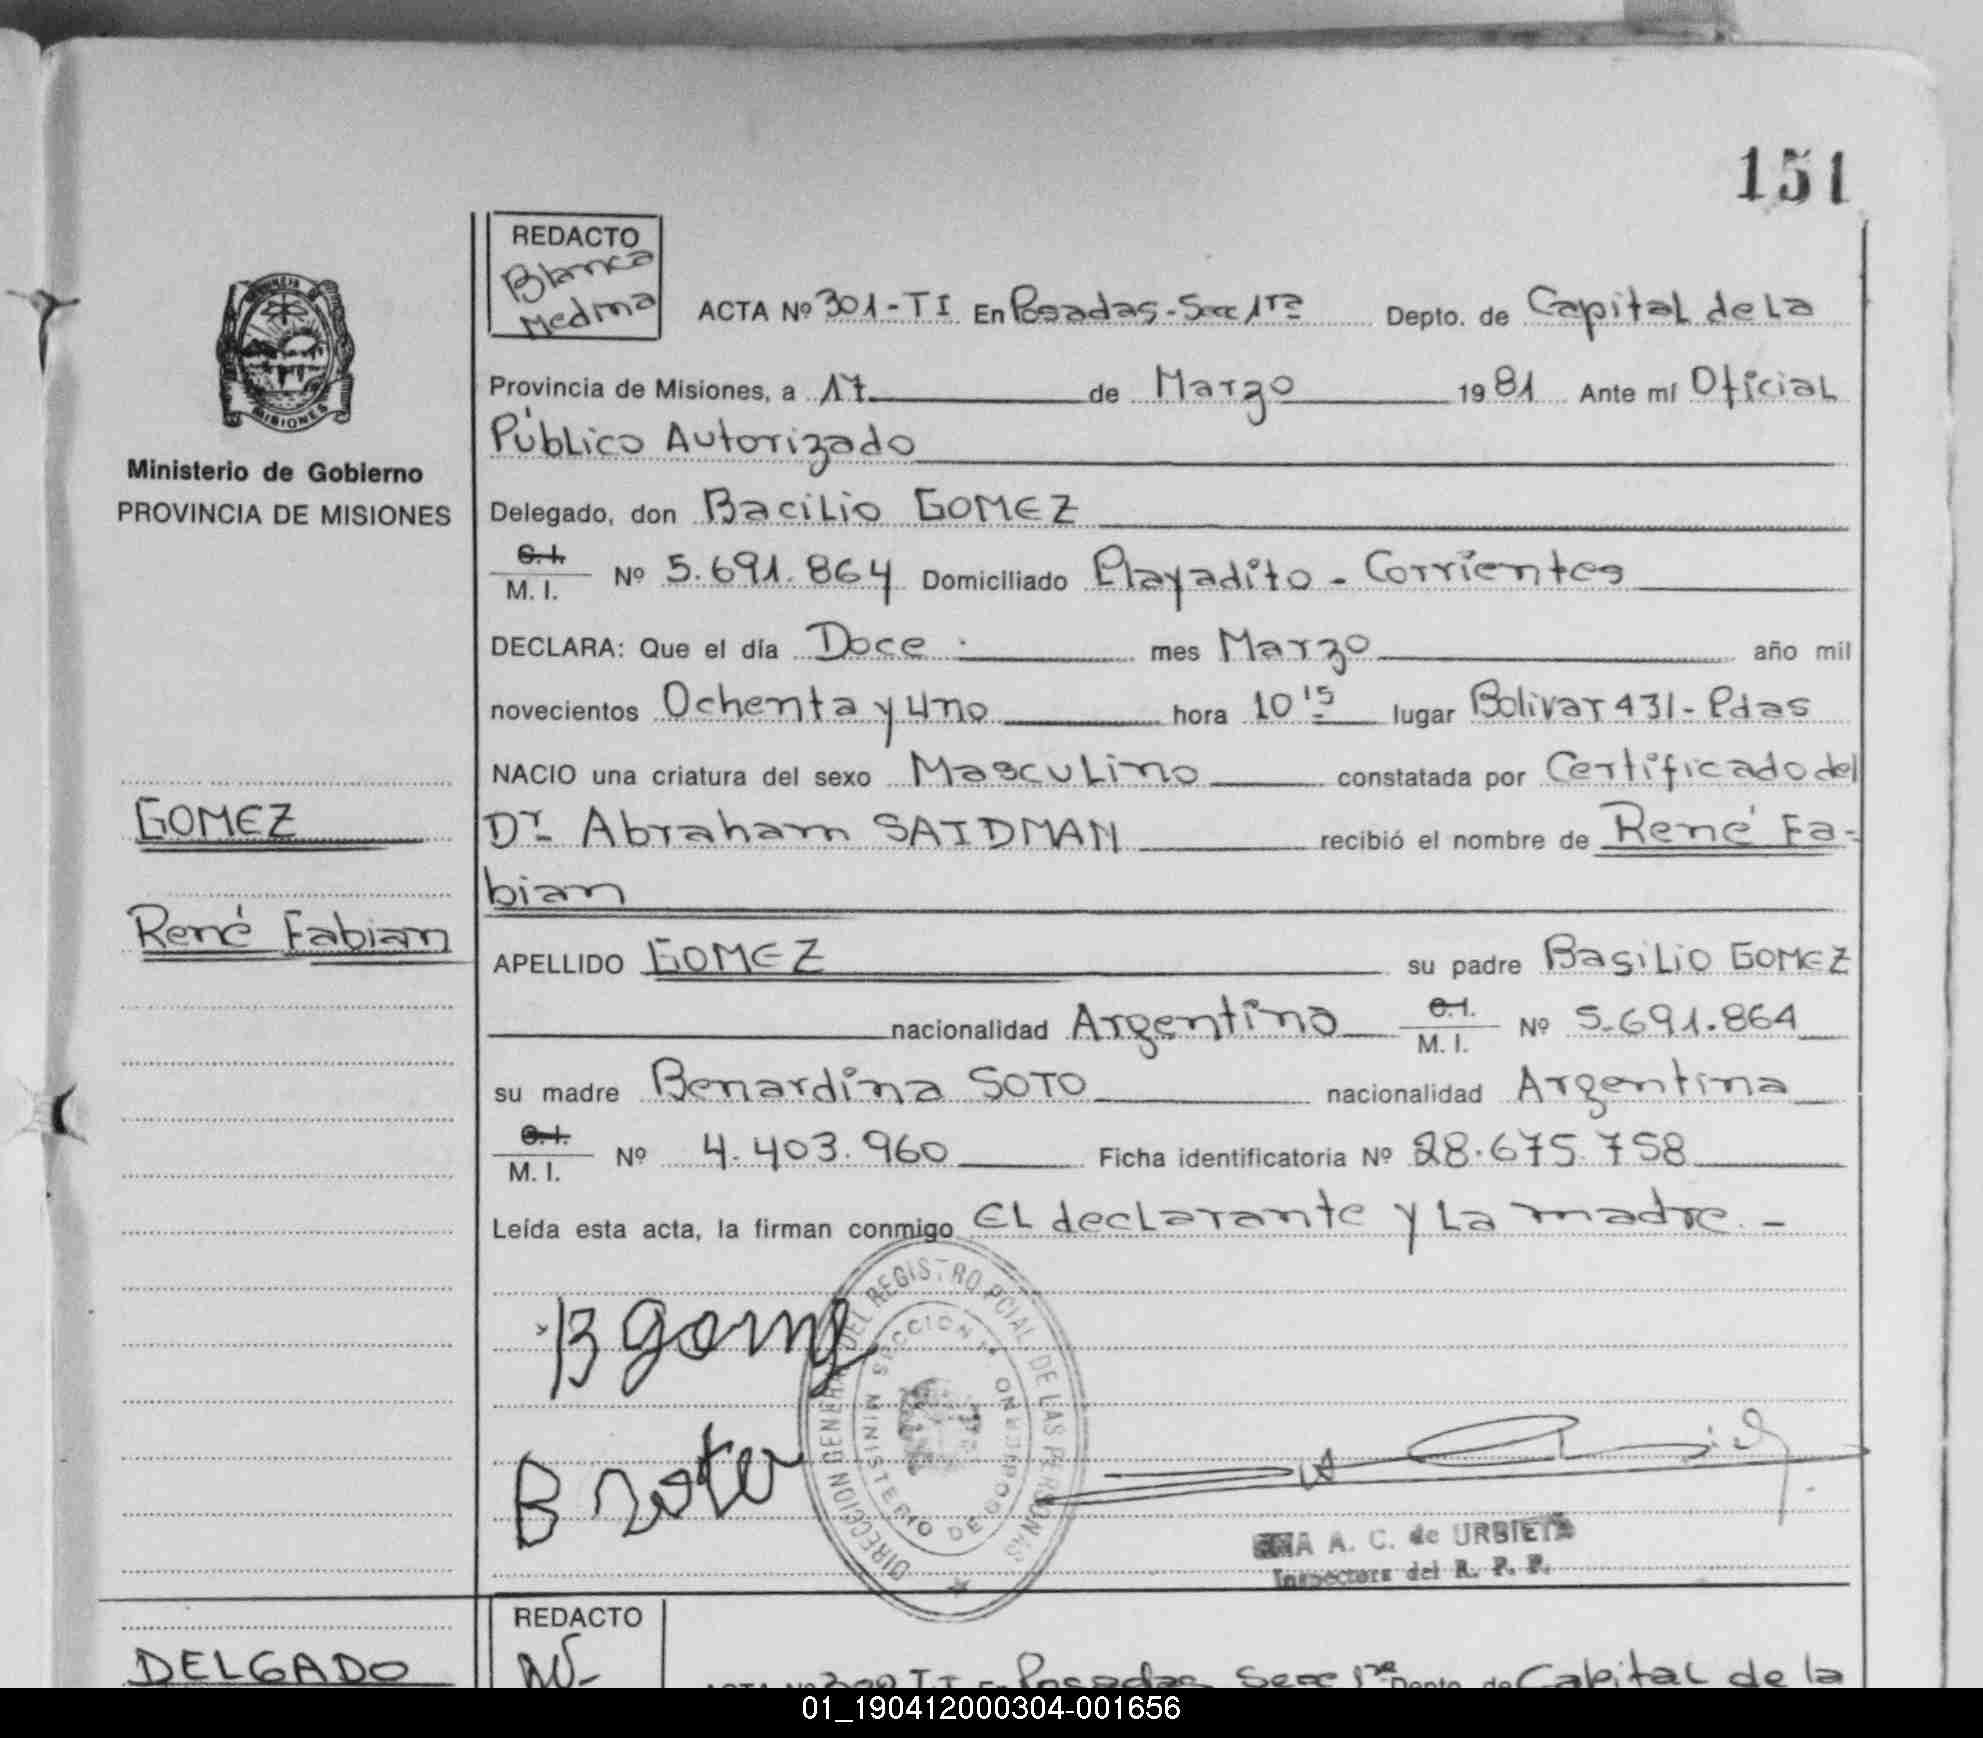 151
REDACTO
Blanca
Medina
ACTA Nº 301-TI En Posadas-Secc 1ra Depto. de Capital de La
Provincia de Misiones, a 17 de Marzo 1981 Ante mí Oficial
Público Autorizado
MISIONES
Ministerio de Gobierno
PROVINCIA DE MISIONES
Delegado, don Bacilio GOMEZ
C.I.
M. I. Nº 5.691.864 Domiciliado Playadito - Corrientes
DECLARA: Que el día Doce.- mes Marzo año mil
novecientos Ochenta y uno hora 10 15 lugar Bolivar 431- Pdas
NACIO una criatura del sexo Masculino constatada por Certificado del
GOMEZ
Dr Abraham SAIDMAN recibió el nombre de René Fa-
bian
René Fabian
APELLIDO GOMEZ su padre Basilio GOMEZ
nacionalidad Argentino C.I. M. I. Nº 5.691.864
su madre Benardina SOTO nacionalidad Argentina
C.I.
M. I. Nº 4.403.960 Ficha identificatoria Nº 28.675.758
Leída esta acta, la firman conmigo El declarante y La madre.-
B gomez
B soto
DIRECCION GENERAL DEL REGISTRO PCIAL DE LAS PERSONAS
SECCION 1ª MINISTERIO DE GOBIERNO
A. C. de URBIETA
Inspectora del R. P. P.
REDACTO
DELGADO
ACTA Nº 302 TI En Posadas Secc 1ra Depto. de Capital de la
01_190412000304-001656